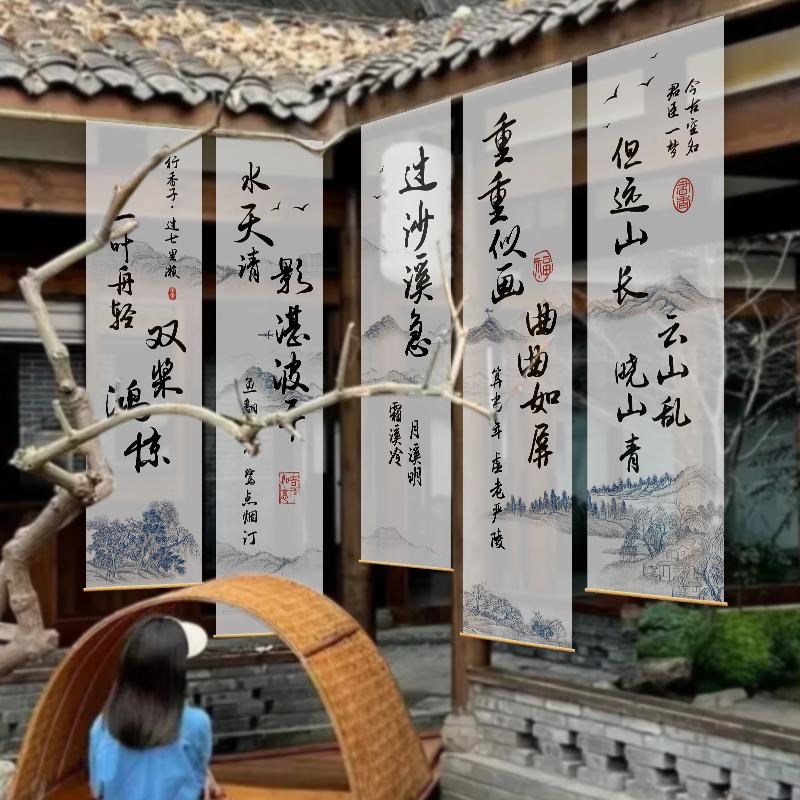 行香子·过七里濑
一叶舟轻
双桨
鸿惊
水天清
影湛波平
鱼翻
鹭点烟汀
过沙溪急
霜溪冷
月溪明
重重似画
福
曲曲如屏
算当年虚老严陵
今古空名
君臣一梦
書香
但远山长
云山乱
晓山青